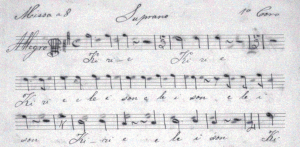 Missa a 8 Suprano 1º Coro
Allegro
Ki ri e Ki ri e
Ki ri e e le i son e le i son e le i
son Ki ri e e le i son Ki